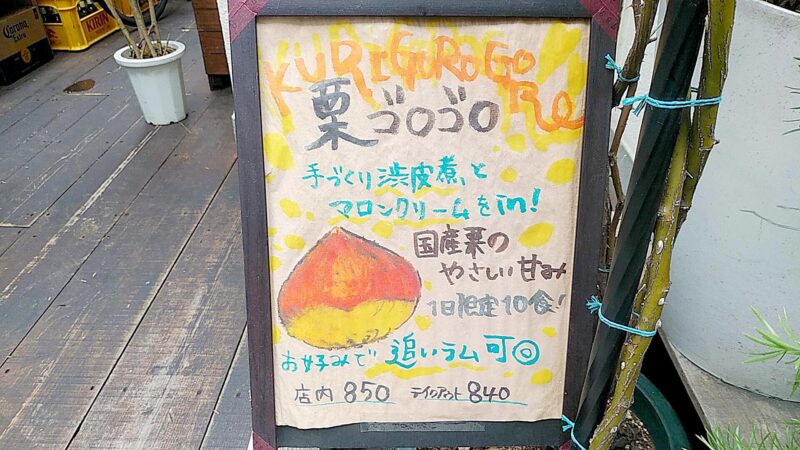 Corona
Extra
KURIGOROGORO
栗ゴロゴロ
手づくり渋皮煮、と
マロンクリームをin!
国産栗の
やさしい甘み
1日限定10食!
お好みで 追いラム可◎
店内 850 テイクアウト 840